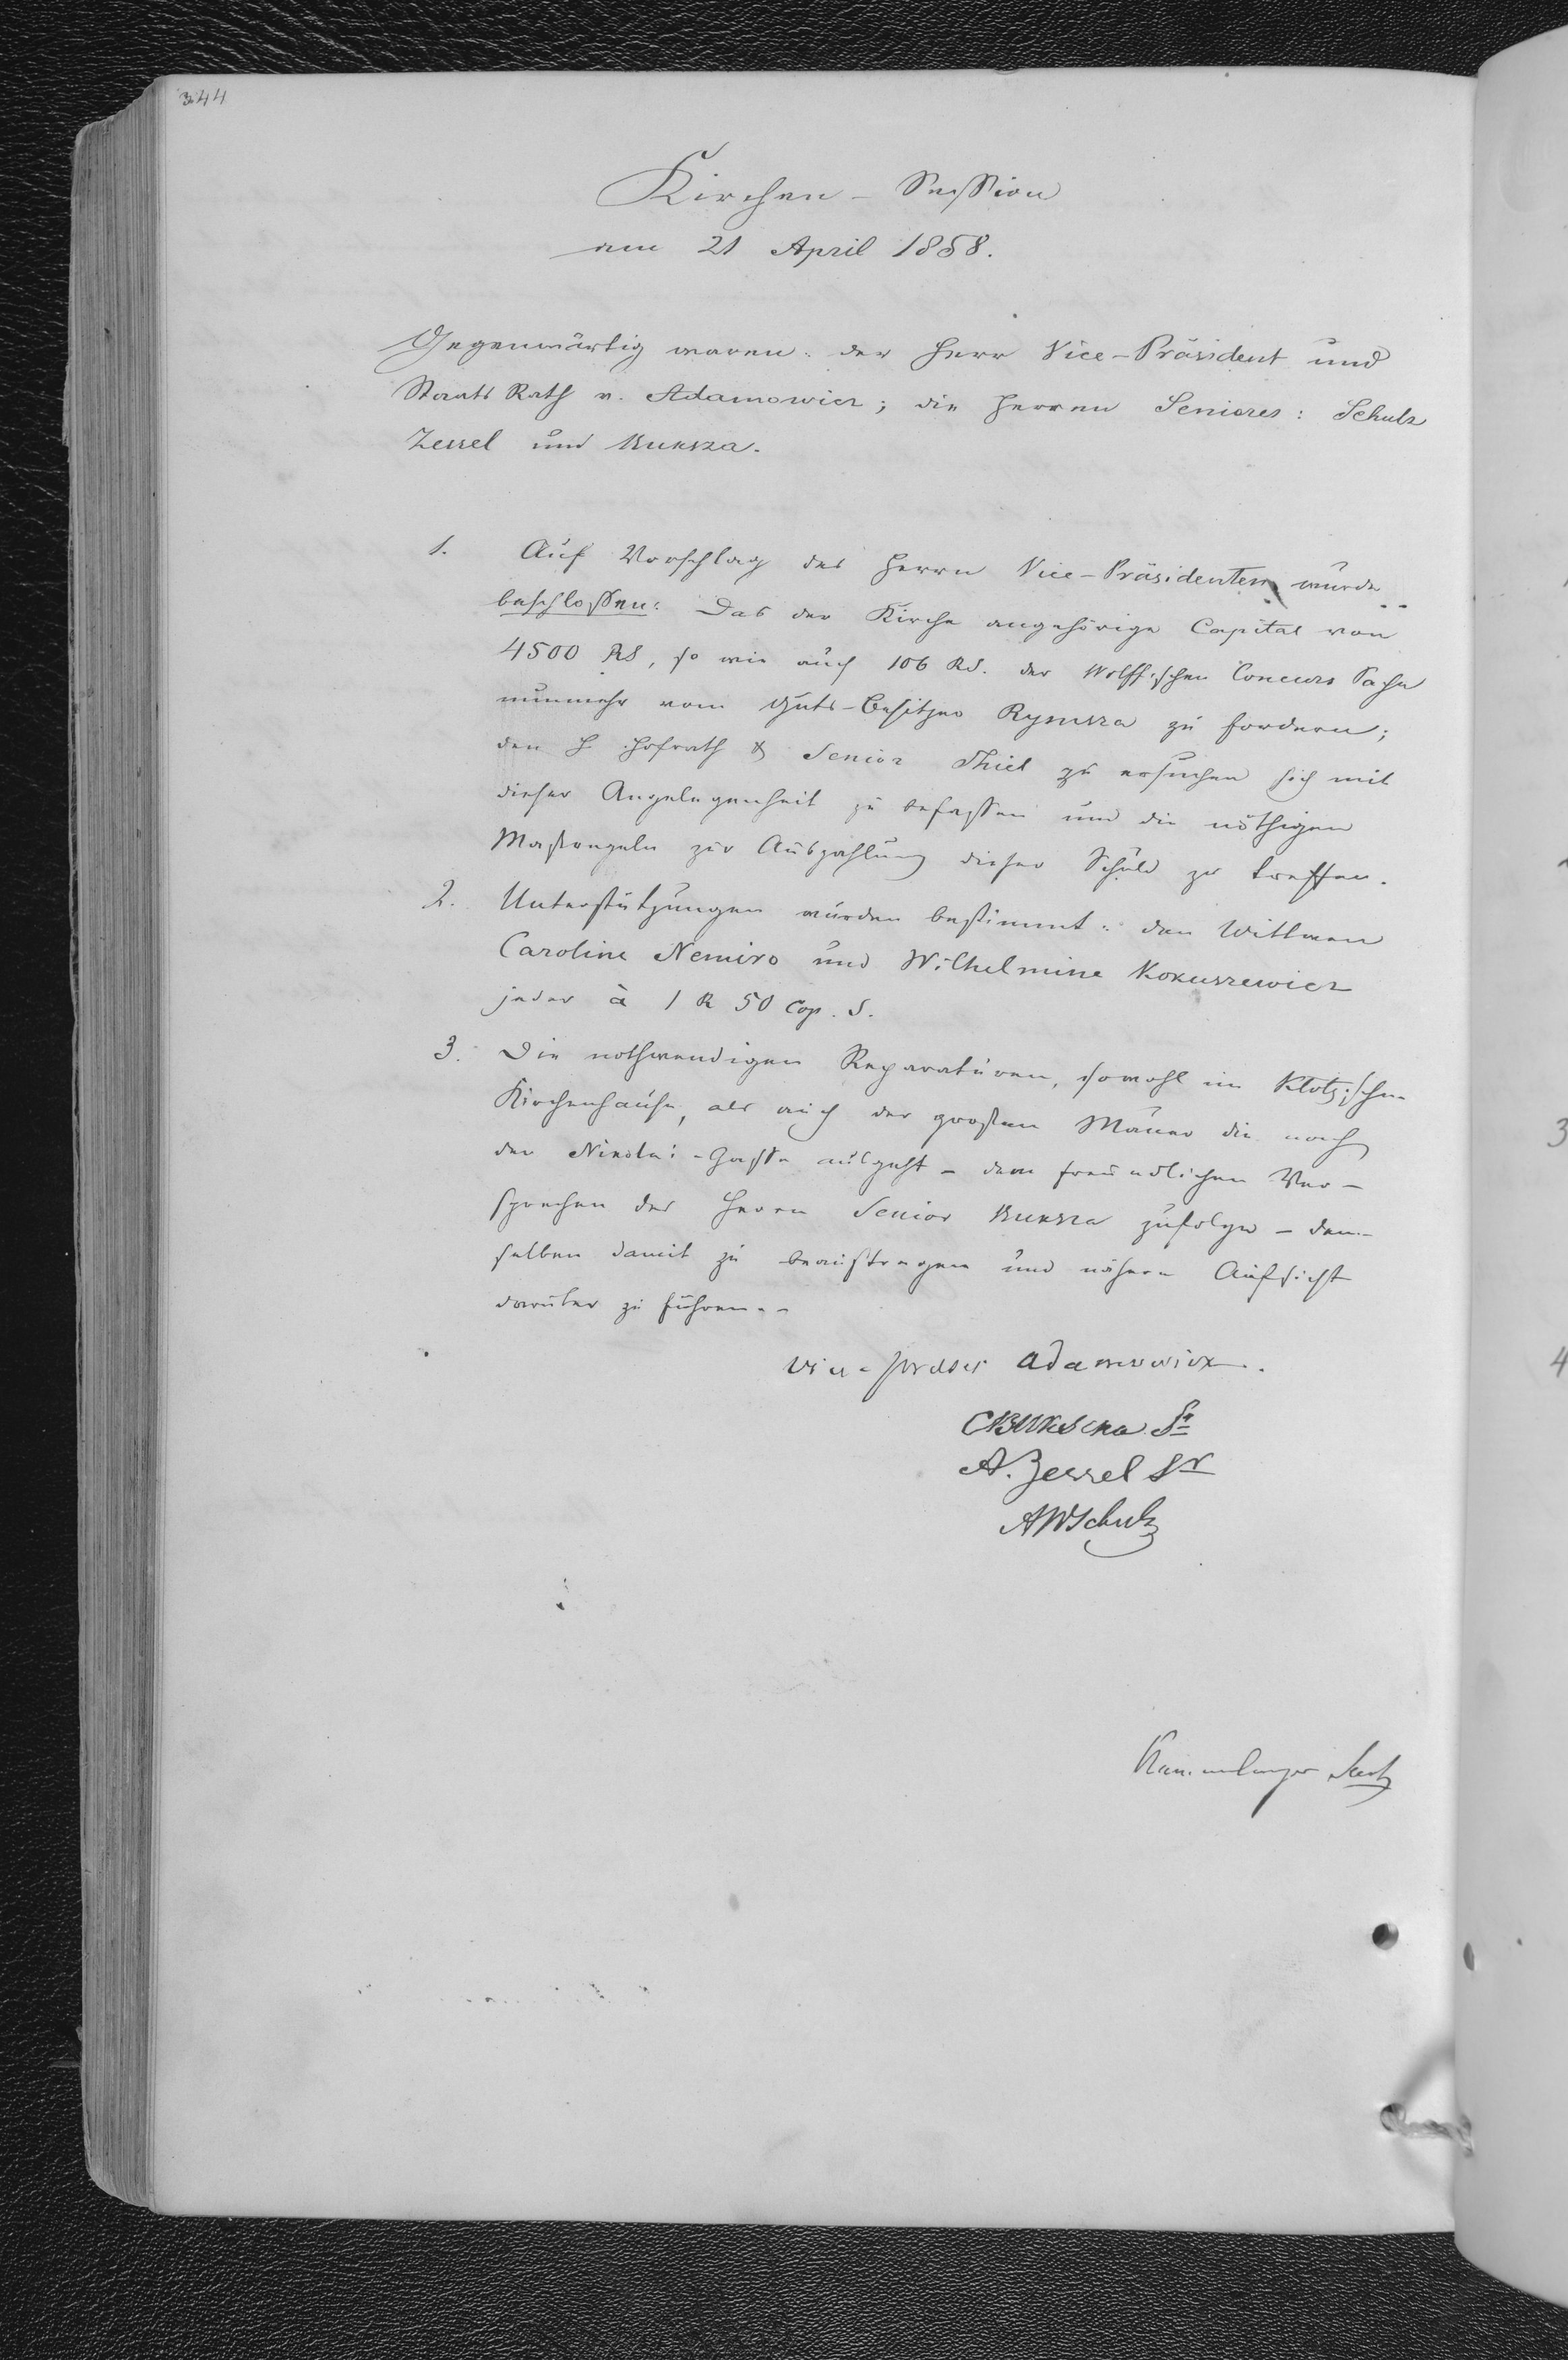 344
Kirchen-Session
am 21 April 1858.
Gegenwärtig waren: der Herr Vice-Präsident und
Staats Rath v. Adamowicz; die Herren Seniores: Schulz
Zessel und Buksza.
1. Auf Vorschlag des Herrn Vice-Präsidenten wurde
beschlossen: Das der Kirche angehörige Capital von
4500 RS, so wie auch 106 RS. der Wolff'schen Concurs Sache
nunmehr vom Guts-Besitzer Rymsza zu fordern;
den H Hofrath & Senior Thiel zu ersuchen sich mit
dieser Angelegenheit zu befassen und die nöthigen
Massregeln zur Auszahlung dieser Schuld zu treffen.
2. Unterstützungen wurden bestimmt: den Wittwen
Caroline Nemiro und Wilhelmine Kokuszewicz
jeder à 1 R 50 Cop. S.
3. Die nothwendigen Reparaturen, sowohl im Klotzischen
Kirchenhause, als auch der grossen Mauer die nach
der Nikolai-Gasse ausgeht – dem freundlichen Ver-
sprechen des Herrn Senior Buksza zufolge – dem-
selben damit zu beauftragen und nähere Aufsicht
darüber zu führen.
Vice-Präses Adamowicz.
CBuksza Sr
A. Zessel Sr
AWSchulz
3
4